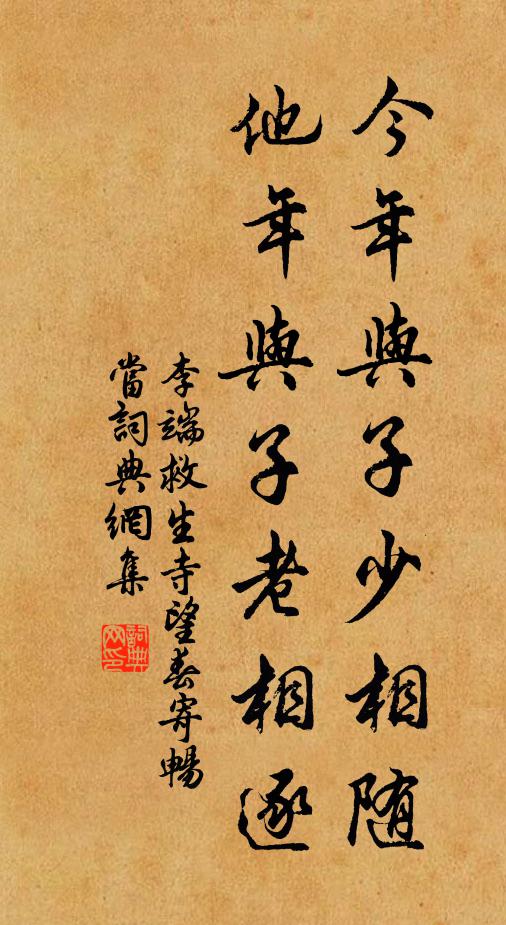 今年與子少相随
他年與子老相逐
李端救生寺望春寄暢
當詞典網集
詞典网印